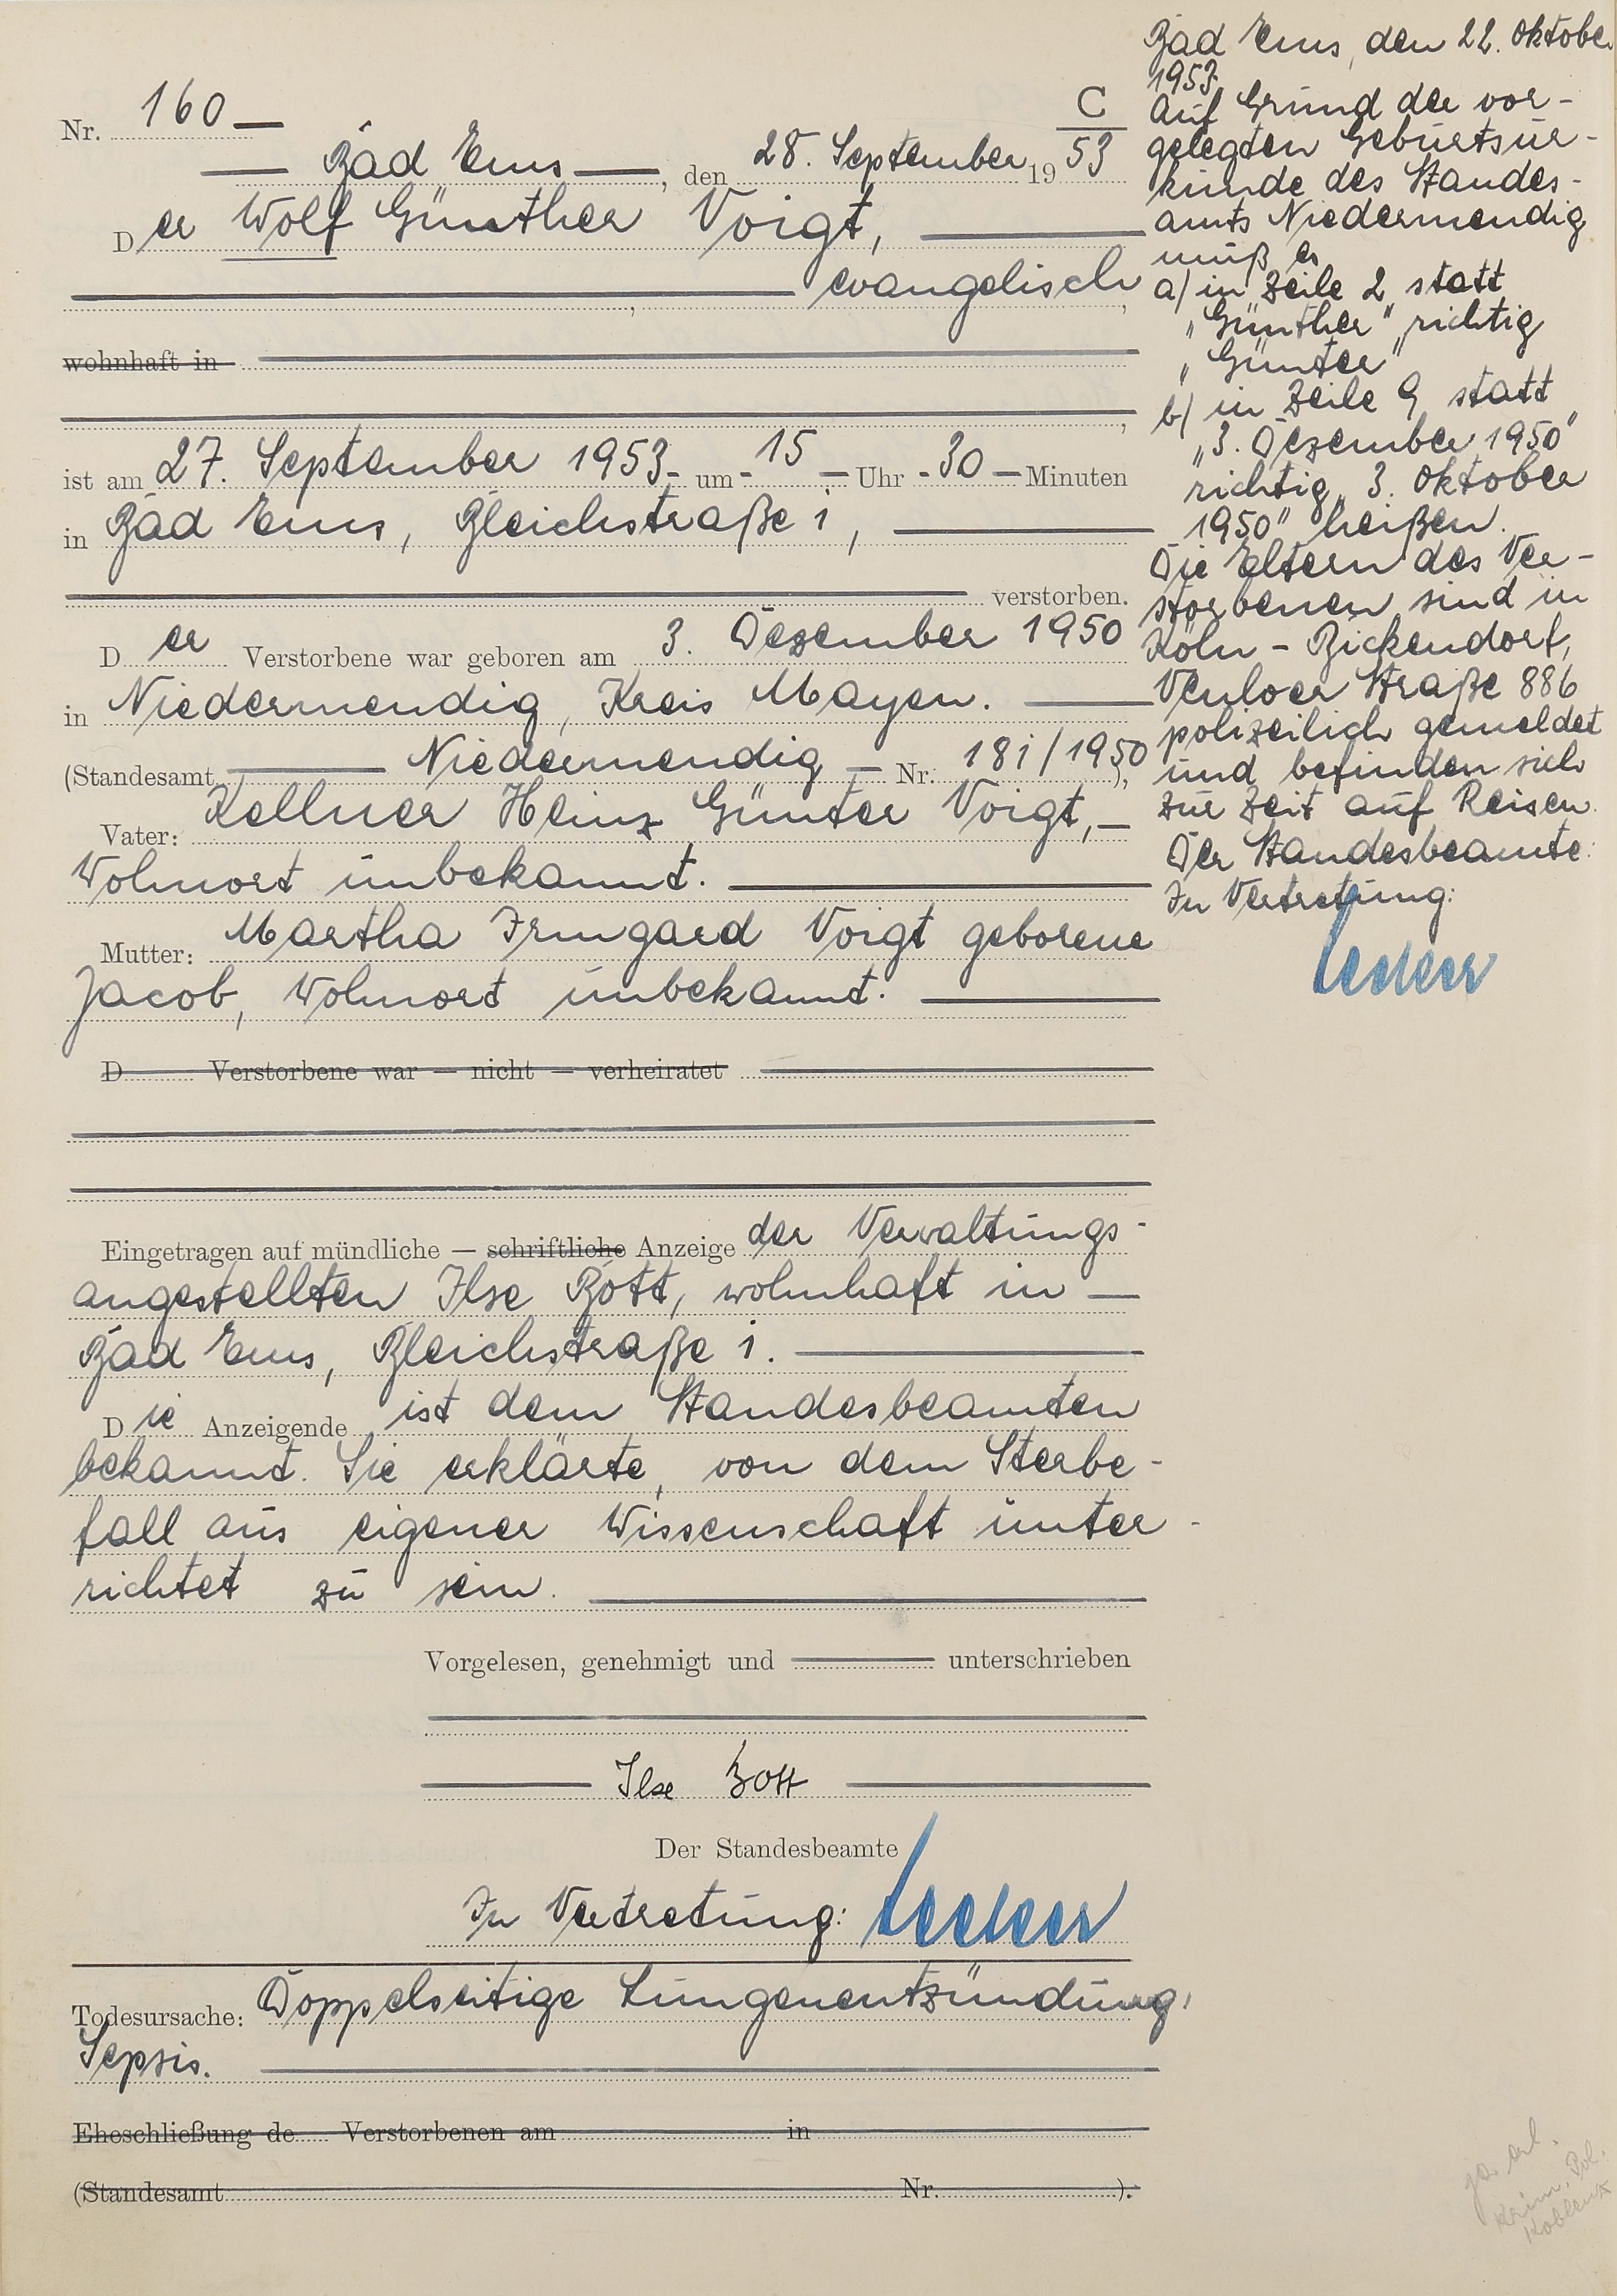 Nr. 160 —
C
— Bad Ems —, den 28. September 1953
Der Wolf Günther Voigt,
evangelisch,
wohnhaft in
ist am 27. September 1953 um 15 Uhr 30 Minuten
in Bad Ems, Bleichstraße 1,
verstorben.
Der Verstorbene war geboren am 3. Dezember 1950
in Niedermendig, Kreis Mayen.
(Standesamt Niedermendig — Nr. 181/1950),
Vater: Kellner Heinz Günter Voigt,
Wohnort unbekannt.
Mutter: Martha Irmgard Voigt geborene
Jacob, Wohnort unbekannt.
D Verstorbene war — nicht — verheiratet
Eingetragen auf mündliche — schriftliche Anzeige der Verwaltungs-
angestellten Ilse Bott, wohnhaft in —
Bad Ems, Bleichstraße 1.
Die Anzeigende ist dem Standesbeamten
bekannt. Sie erklärte, von dem Sterbe-
fall aus eigener Wissenschaft unter-
richtet zu sein.
Vorgelesen, genehmigt und unterschrieben
Ilse Bott
Der Standesbeamte
In Vertretung:
Todesursache: Doppelseitige Lungenentzündung,
Sepsis.
Eheschließung de Verstorbenen am in
(Standesamt Nr. ).
Bad Ems, den 22. Oktober
1953
Auf Grund der vor-
gelegten Geburtsur-
kunde des Standes-
amts Niedermendig
muß es
a) in Zeile 2 statt
„Günther" richtig
„Günter"
b) in Zeile 9 statt
„3. Dezember 1950"
richtig „3. Oktober
1950" heißen.
Die Eltern des Ver-
storbenen sind in
Köln - Bickendorf,
Venloer Straße 886
polizeilich gemeldet
und befinden sich
zur Zeit auf Reisen.
Der Standesbeamte:
In Vertretung:
Krim. Pol.
Koblenz